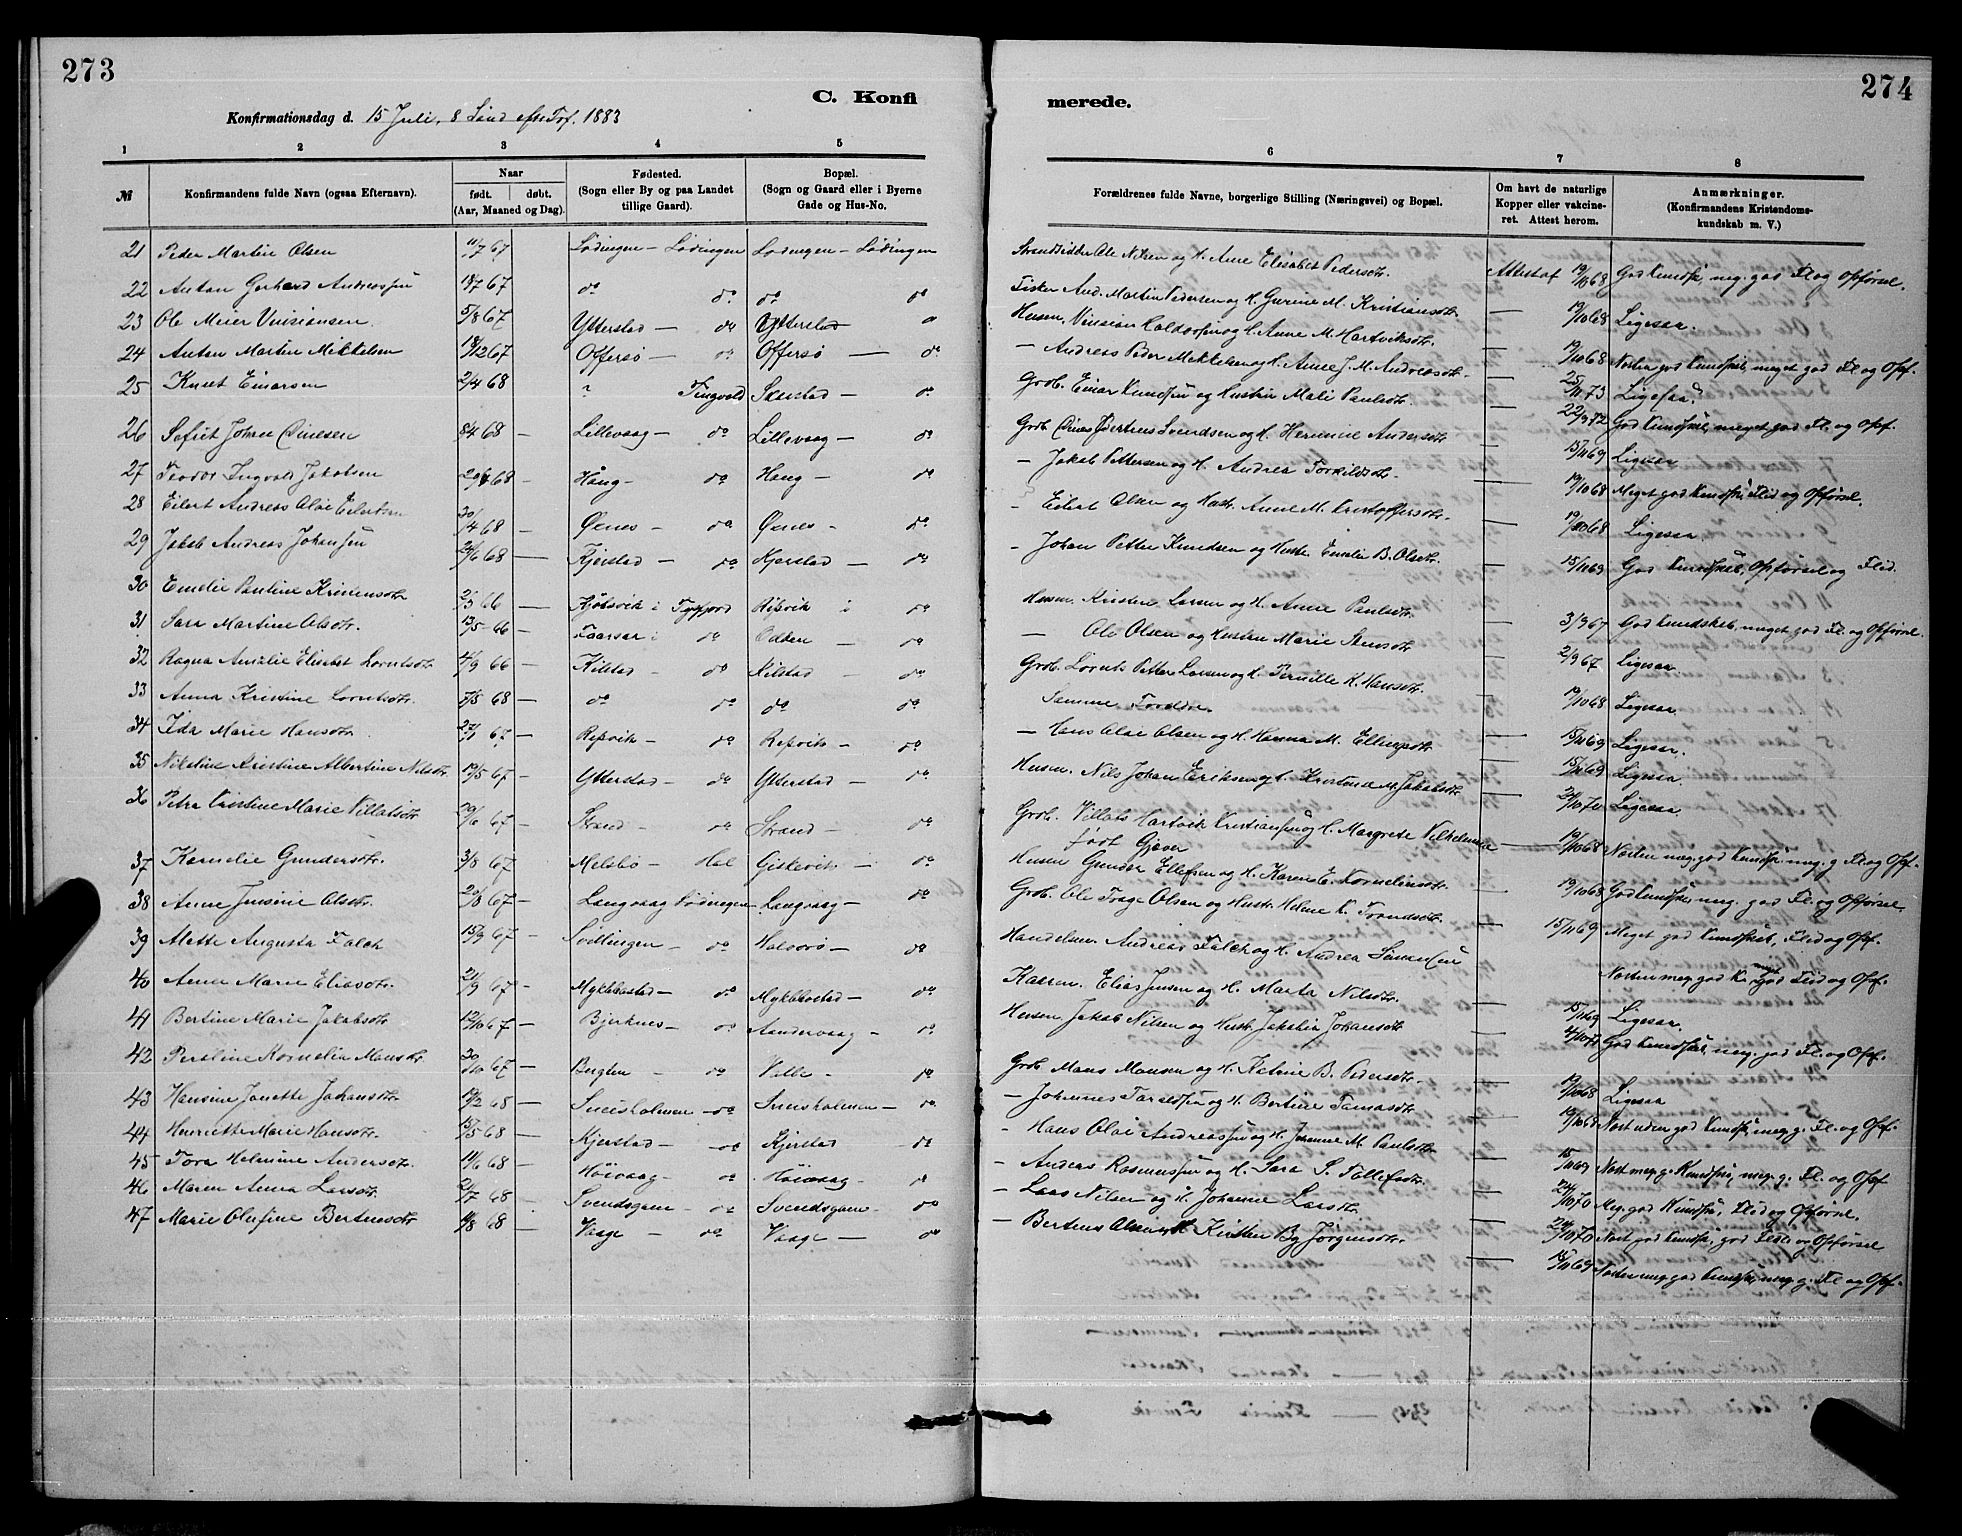 273
274
C. Konfi
merede.
Konfirmationsdag d. 15 Juli, 8 Sønd eft. Trf. 1883
1 2 3 4 5
6 7 8
№
Konfirmandens fulde Navn (ogsaa Efternavn).
Naar
født. døbt.
(Aar, Maaned og Dag).
Fødested.
(Sogn eller By og paa Landet
tillige Gaard).
Bopæl.
(Sogn og Gaard eller i Byerne
Gade og Hus-No.
Forældrenes fulde Navne, borgerlige Stilling (Næringsvei) og Bopæl.
Om havt de naturlige
Kopper eller vakcine-
ret. Attest herom.
Anmærkninger.
(Konfirmandens Kristendoms-
kundskab m. V.)
21 Peder Martin Olsen 11/7 67 Lødingen - Lødingen Lødingen - Lødingen Ole Nilsen og H. Ane Elisabet Pedersdtr. Attest af 19/10 68 God Kundsk, meg. god Fl og Opførsel.
22 Anton Gerhard Andreassen 18/7 67 do do do do Fisker And. Martin Pedersen og H. Gurine M. Kristiansdtr. — 19/10 68 Ligesaa.
23 Ole Meier 5/8 67 Ytterstad - do Ytterstad Husm. og H. Anne M. Hartviksdtr. — 19/10 68
24 Anton Martin Mikkelsen 18/12 67 Offersø - do Offersø — do — Andreas Peder Mikkelsen og H. Anne J. M. Andreasdtr. — 19/10 68 Næsten god Kundskb, meget god Fl. og Opf.
25 Knut Einarsen 2/4 68 Tingvold Skarstad - do Grdb. Einar Knudsen og Hustru Mali Paulsdtr. 25/11 73 Ligesaa.
26 Johan 8/4 68 — Lillevaag - do Lillevaag - do Grdb. Svendsen og H. Hermine Andersdtr 22/9 72 God Kundskb, meget god Fl. og Opf.
27 Teodor Ingvald Jakobsen 68 — Haug - do Haug - do — Jakob Pettersen og H. Andrea Torkildsdtr. 15/11 69 Ligesaa
28 Eilert Andreas Olai Eilertsen 30/4 68 — Øenes - do Øenes - do - Eilert Olsen og Hustr. Anne M. Kristoffersdtr. — 19/10 68 Meget god Kundsk, Flid og Opførsel.
29 Jakob Andreas Johansen 24/6 68 — Kjerstad - do Kjerstad - do - Johan Petter Knudsen og Hustr. Emelie B. Olsdtr. — 19/10 68 Ligesaa
30 Emelie Pauline Kristensdtr 2/3 66 — Kjøbsvik i Tysfjord Ribsvik i do Husm. Kristen Larsen og H. Anne Paulsdtr. — 15/11 69 God Kundskab, Opførsel og Flid.
31 Sara Martine Olsdtr. 13/5 66 — i do do — Ole Olsen og Hustru Marie — 3/9 67 God Kundskab, meget god Fl. og Opførsel.
32 Ragna Amalie Elisabet Lorntsdtr 4/9 66 — Kilstad - do Kilstad - do Grdb. Lornts Petter Larsen og H. Pernille K. Hansdtr. — 2/9 67 Ligesaa
33 Anna Kristine Lorntsdtr. 7/8 68 — do do do do Samme Foreldre. — 19/10 68 Ligesaa.
34 Ida Marie Hansdtr. 27/1 67 — Repvik - do Repvik - do — Hans Olai Olsen og H. Hanna M. Ellingsdtr — 15/11 69 Ligesaa.
35 Nikoline Kristine Albertine Nilsdtr. 19/5 67 — Ytterstad - do Ytterstad - do Husm. Nils Johan Eriksen og H. Kristine M. Jakobsdtr. — 15/11 69 Ligesaa
36 Petra Kristine Marie Villatsdtr 29/6 67 — Strand - do Strand - do Grdb. Villats Hartvik Kristiansen og H. Margrete Vilhelmina — 24/10 70 Ligesaa
født Gjæver
37 Kornelie Gundersdtr. 3/8 67 — Melsbø - Hol Giskevik - do Husm Gunder Ellefsen og H. Karen E. Korneliusdtr. — 19/10 68 Næsten meg. god Kundsk, meg. g Fl og Opf.
38 Anne Jensine Olsdtr. 20/8 67 — Langvaag Lødingen Langvaag - do Grdb. Ole Olsen og Hustr. Helene K. — 19/10 68 God Kundsk, meg. god Fl. og Opførsel.
39 Mette Augusta Falch 15/9 67 — - do do Handelsm. Andreas Falch og H. Andrea — 15/11 69 Meget god Kundskab, Flid og Opf.
40 Anna Marie Eliasdtr. 21/9 67 — Myklebostad - do Myklebostad - do Elias Jensen og H. Marta Nilsdtr. Næsten meg. god K. meget god Flid og Opf.
41 Bertine Marie Jakobsdtr 12/10 67 — Bjerknes - do Sandervaag - do Husm. Jakob Nilsen og Hustr. Jakobin Johansdtr 15/11 69 Ligesaa.
42 Kornelia Monsdtr. 30/10 67 — - do do Grdb. Mons Monsen og H. Katrine B. Pedersdtr. — God Kundskab, meg. god Fl. og Opf.
43 Hansine Jonette Johansdtr. 12/2 68 — - do - do — Johannes og H. Bertine — 19/10 68 Ligesaa
44 Henriette Marie Hansdtr. 15/5 68 — Kjerstad - do Kjerstad - do - Hans Olai Andreassen og H. Johanne M. Paulsdtr — 19/10 68 god Kundsk, meg. g. Fl. og Opf.
45 Tora Helmine Andersdtr. 11/6 68 — Høivaag - do Høivaag - do - Anders Rasmussen og H. Sara S. Tollefsdtr. — 15/11 69 Næst meg. g. Kundsk, meg. g. Fl. og Opf
46 Maren Anna Larsdtr. 21/7 68 — Svendsgam - do Svendsgam - do — Lars Nilsen og H. Johanne Larsdtr. — 24/10 70 Meg. god Kundsk, Flid og Opførsel.
47 Marie Olufine Bertinsdtr 68 — Vaage - do Vaage - do — Olsen H. Kirsten Jørgensdtr. — 24/10 70 Næst god Kundsk, god Flid og Opførsel
— 15/11 69 Næsten meg. god Kundsk, meg. g. Fl. og Opf.